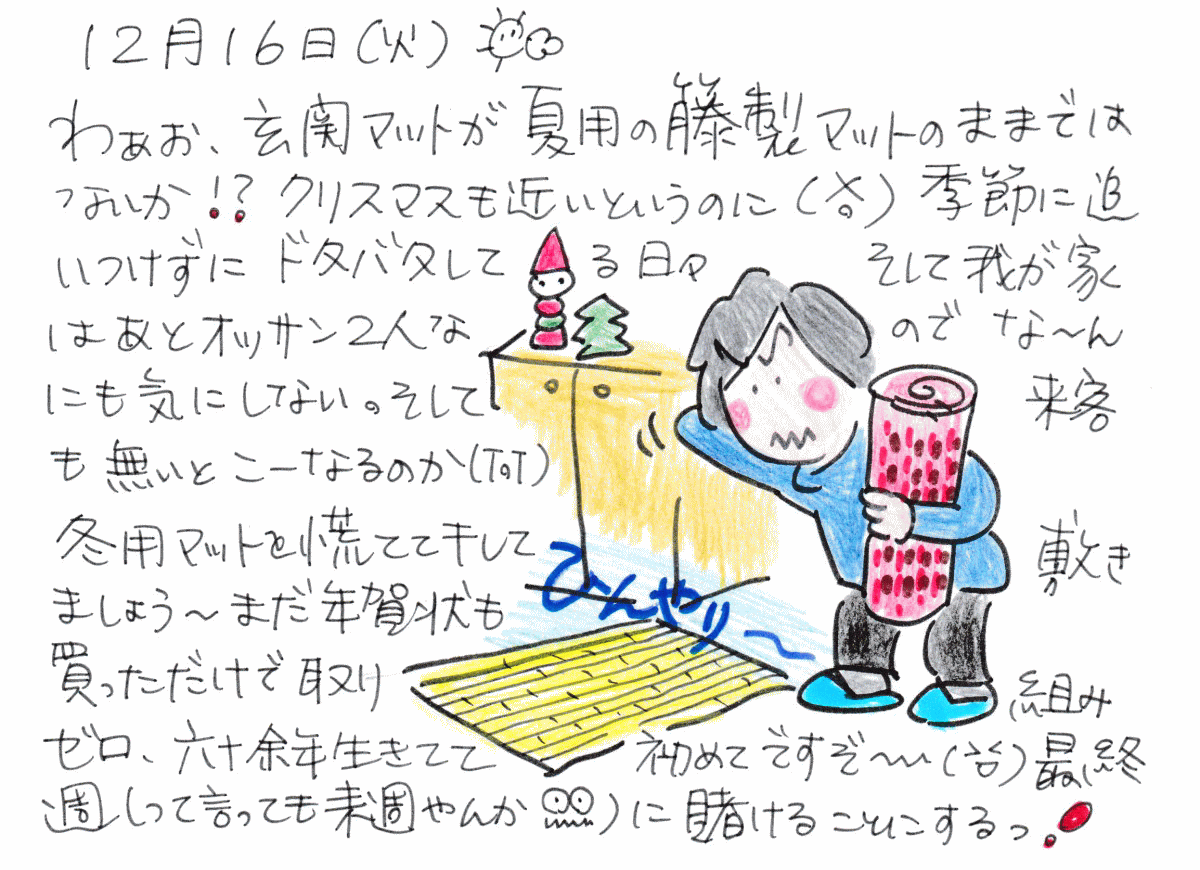 12月16日(火)
わぁお、玄関マットが夏用の籐製マットのままでは
ないか!?クリスマスも近いというのに(笑)季節に追
いつけずにドタバタしてる日々 そして我が家
はあとオッサン2人なのでな〜ん
にも気にしない。そして来客
も無いとこーなるのか(ToT)
冬用マットを慌てて干して敷き
ましょう〜まだ年賀状も
買っただけで取り組み
ゼロ、六十余年生きてて初めてですぞ〜(笑)最終
週(って言っても来週やんか)に賭けることにするっ!
ひんやり〜